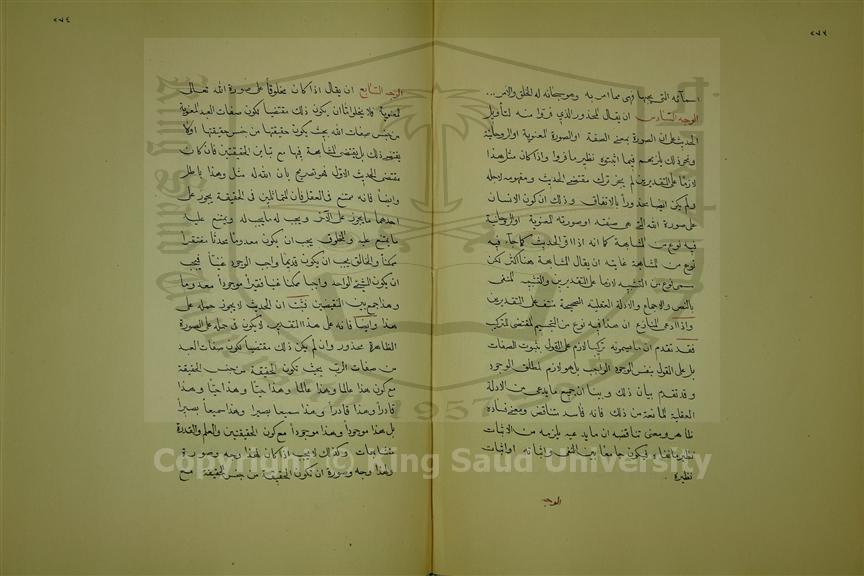 ٢٧٣
اسمائه التي يحبها فهي مما امر به وهو سبحانه له الخلق والامر ...
الوجه السادس ان يقال المحذور الذي فروا منه لتأويل
الحديث على ان الصورة بمعنى الصفة او الصورة المعنوية او الروحانية
ونحو ذلك يلزمهم فيما اثبتوه نظير ما فروا منه واذا كان مثل هذا
لازما على التقديرين لم يجز ترك مقتضى الحديث ومفهومه لاجله
ولم يكن ايضا محذورا بالاتفاق وذلك ان كون الانسان
على صورة الله التي هي صفته او صورته المعنوية او الروحانية
فيه نوع من المشابهة كما انه اذا اقر الحديث كما جاء فيه
نوع من المشابهة غايته ان يقال المشابهة هنا اكثر لكن
مسمى نوع من التشبيه لازم على التقديرين والتشبيه المنفي
بالنص والاجماع والادلة العقلية الصحيحة منتف على التقديرين
واذا ادعى المنازع ان هذا فيه نوع من التجسيم المقتضي للتركيب
فقد تقدم ان ما يسمونه تركيبا لازم على القول بثبوت الصفات
بل على القول بنفس الوجود الواجب بل هو لازم لمطلق الوجود
وقد تقدم بيان ذلك وبينا ان جميع ما يدعى من الادلة
العقلية المانعة من ذلك فانه فاسد متناقض ومعنى فساده
ظاهر ومعنى تناقضه ان ما يدعيه يلزمه من الاثبات
نظير ما نفاه فيكون جامعا بين النفي واثباته او اثبات
نظيره .
الوجه
٢٧٤
الوجه السابع ان يقال اذا كان مخلوقا على صورة الله تعالى
المعنوية فلا يخلو اما ان يكون ذلك مقتضيا لكون صفات العبد المعنوية
من جنس صفات الله بحيث يكون حقيقتها من جنس حقيقتها او لا
يقتضي ذلك بل يقتضي المشابهة فيها مع تباين الحقيقتين فان كان
مقتضى الحديث الاول فهو تصريح بان الله له مثل وهذا باطل
وايضا فانه ممتنع في العقل فان المتماثلين في الحقيقة يجوز على
احدهما ما يجوز على الآخر ويجب له ما يجب له ويمتنع عليه
ما يمتنع عليه والمخلوق يجب ان يكون معدوما محدثا مفتقرا
ممكنا والخالق يجب ان يكون قديما واجب الوجود غنيا فيجب
ان يكون الشيء الواحد واجبا ممكنا غنيا فقيرا موجودا معدوما
وهذا جمع بين النقيضين فثبت ان الحديث لا يجوز حمله على
هذا وايضا فانه على هذا التقدير لا يكون في حمله على الصورة
الظاهرة محذور وان لم يكن ذلك مقتضيا لكون صفات العبد
من صفات الرب بحيث تكون الحقيقة من جنس الحقيقة
مع كون هذا عالما وهذا عالما وهذا حيا وهذا حيا وهذا
قادرا وهذا قادرا وهذا سميعا بصيرا وهذا سميعا بصيرا
بل هذا موجودا وهذا موجودا مع كون الحقيقتين والعلم والقدرة
متشابهات وكذلك لا يجب اذا كان لهذا وجه وصورة
ولهذا وجه وصورة ان تكون الحقيقة من جنس الحقيقة مع
1957
Copyright © King Saud University